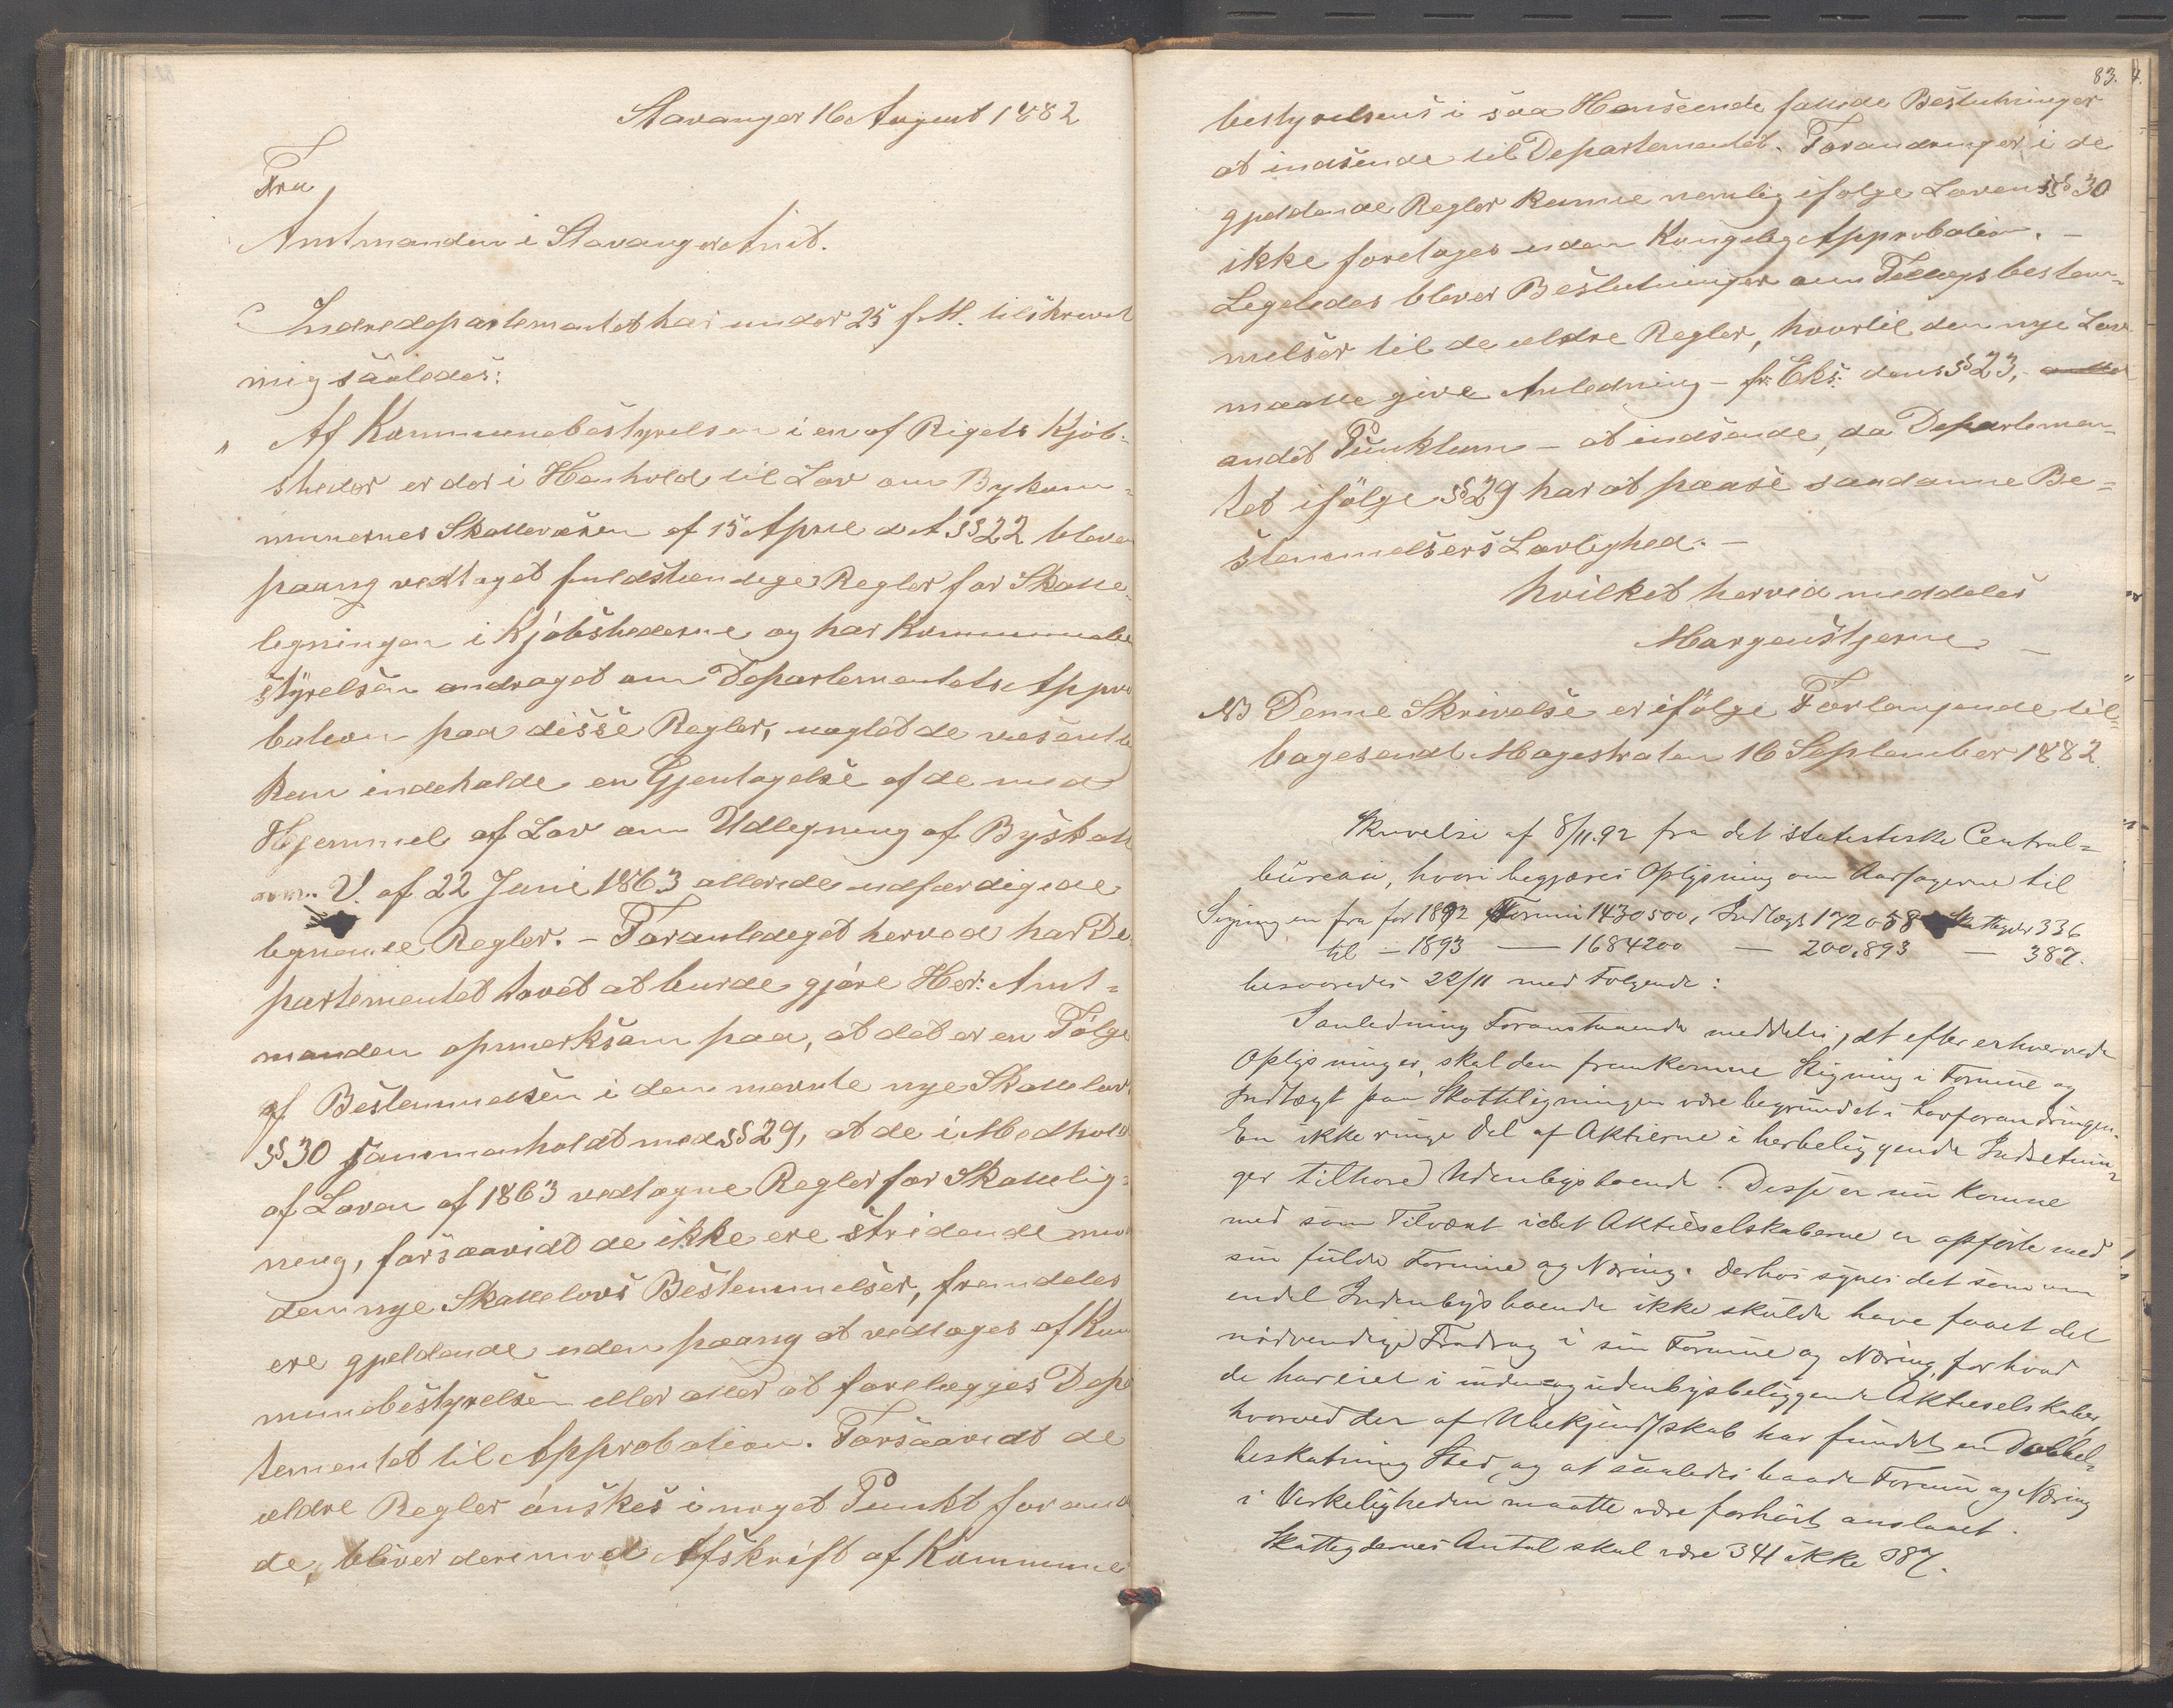 Stavanger 16 August 1882
Fra
Amtmanden i Stavanger Amt.
Indredepartementet har under 25 f. M. tilskrevet
mig saaledes:
„ Af Kommunebestyrelsen i en af Rigets Kjöb-
stæder er der i Henhold til Lov om Bykom-
munernes Skattevæsen af 15 April d. A. §§ 22 bleven
paany vedtaget fuldstændige Regler for Skatte-
ligningen i Kjöbstæderne og har Kommunebe
styrelsen andraget om Departementets Appro
bation paa disse Regler, uagtet de væsentlig
kun indeholde en Gjentagelse af de med
Hjemmel af Lov om Udlegning af Byskatt
m. V. af 22 Juni 1863 allerede udfærdigede
lignende Regler. – Foranlediget herved har De
partementet troet at burde gjöre Hr: Amt-
manden opmerksom paa, at det er en Fölge
af Bestemmelsen i den nævnte nye Skattelovs
§§ 30 sammenholdt med §§ 29, at de i Medhold
af Loven af 1863 vedtagne Regler for Skattelig-
ning, forsaavidt de ikke ere stridende mod
den nye Skattelovs Bestemmelser, fremdeles
ere gjeldende uden paany at vedtages af Kom
munebestyrelsen eller at forelægges Depar
tementet til Approbation. Forsaavidt de
ældre Regler önskes i noget Punkt forandre
de, bliver derimod Afskrift af Kommune
83.
bestyrelsens i saa Henseende fattede Beslutninger
at indsende til Departementet. Forandringer i de
gjeldende Regler kunne nemlig ifölge Lovens §§ 30
ikke foretages uden Kongelig Approbation. –
Ligeledes bliver Beslutninger om Tillægsbestem-
melser til de ældre Regler, hvortil den nye Lov
maatte give Anledning – fr: Eks: dens §§ 23,
andet Punktum – at indsende, da Departemen-
tet ifölge §§ 29 har at paase saadanne Be-
stemmelsers Lovlighed. –
hvilket herved meddeles
Morgenstjerne –
NB Denne Skrivelse er ifölge Forlangende til-
bagesendt Magistraten 16 September 1882.
Skrivelse af 8/11.92 fra det statistiske Central-
büreau, hvori begjæres Oplysning om Aarsagerne til
Stigningen fra for 1892 Formue 1430500, Indtægt 172058 Skatteydere 336
til – 1893 — 1684200 — 200,893 — 387.
besvaredes 22/11 med Følgende:
I anledning Foranstaaende meddeles, at efter erhvervede
Oplysninger, skal den fremkomne Stigning i Formue og
Indtægt paa Skatteligningen være begrundet i Lovforandringen.
En ikke ringe Del af Aktierne i herbeliggende Indretnin-
ger tilhøre Udenbysboende. Disse er nu komne
med som Tilvæxt idet Aktieselskaberne er opförte med
sin fulde Formue og Næring. Derhos synes det som om
endel Indenbysboende ikke skulde have faaet det
nödvendige Fradrag i sin Formue og Næring, for hvad
de har eiet i inden og udenbysbeliggende Aktieselskaber,
hvorved der af Ubekjendtskab har fundet en Dobbel-
beskatning Sted, og at saaledes baade Formue og Næring
i Virkeligheden maatte være forhöit anslaaet.
Skatteydernes Antal skal være 341 ikke 387.